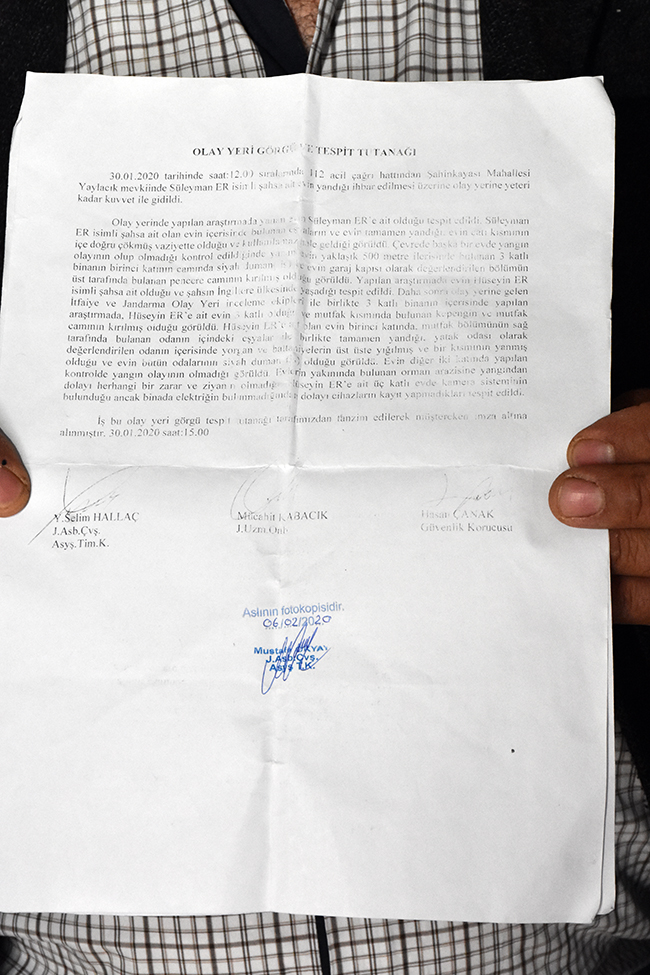 OLAY YERİ GÖRGÜ VE TESPİT TUTANAĞI
30.01.2020 tarihinde saat:12.00 sıralarında 112 acil çağrı hattından Şahinkayası Mahallesi
Yaylacık mevkiinde Süleyman ER isimli şahsa ait evin yandığı ihbar edilmesi üzerine olay yerine yeteri
kadar kuvvet ile gidildi.
Olay yerinde yapılan araştırmada yanan evin Süleyman ER'e ait olduğu tespit edildi. Süleyman
ER isimli şahsa ait olan evin içerisinde bulunan eşyaların ve evin tamamen yandığı, evin çatı kısmının
içe doğru çökmüş vaziyette olduğu ve kullanılamaz hale geldiği görüldü. Çevrede başka bir evde yangın
olayının olup olmadığı kontrol edildiğinde yanan evin yaklaşık 500 metre ilerisinde bulunan 3 katlı
binanın birinci katının camında siyah duman ve evin garaj kapısı olarak değerlendirilen bölümün
üst tarafında bulunan pencere camının kırılmış olduğu görüldü. Yapılan araştırmada evin Hüseyin ER
isimli şahsa ait olduğu ve şahsın İngiltere ülkesinde yaşadığı tespit edildi. Daha sonra olay yerine gelen
İtfaiye ve Jandarma Olay Yeri inceleme ekipleri ile birlikte 3 katlı binanın içerisinde yapılan
araştırmada, Hüseyin ER'e ait evin 3 katlı olduğu ve mutfak kısmında bulunan kepengin ve mutfak
camının kırılmış olduğu görüldü. Hüseyin ER'e ait olan evin birinci katında, mutfak bölümünün sağ
tarafında bulunan odanın içindeki eşyalar ile birlikte tamamen yandığı, yatak odası olarak
değerlendirilen odanın içerisinde yorgan ve battaniyelerin üst üste yığılmış ve bir kısmının yanmış
olduğu ve evin bütün odalarının siyah duman olduğu görüldü. Evin diğer iki katında yapılan
kontrolde yangın olayının olmadığı görüldü. Evlerin yakınında bulunan orman arazisine yangından
dolayı herhangi bir zarar ve ziyanın olmadığı, Hüseyin ER'e ait üç katlı evde kamera sisteminin
bulunduğu ancak binada elektriğin bulunmadığından dolayı cihazların kayıt yapmadıkları tespit edildi.
İş bu olay yeri görgü tespit tutanağı tarafımızdan tanzim edilerek müştereken imza altına
alınmıştır. 30.01.2020 saat:15.00
Y.Selim HALLAÇ Mücahit KABACIK Hasan ÇANAK
J.Asb.Çvş. J.Uzm.Onb. Güvenlik Korucusu
Asyş.Tim.K.
Aslının fotokopisidir.
06/02/2020
Mustafa
J.Asb.Çvş.
Asyş T.K.